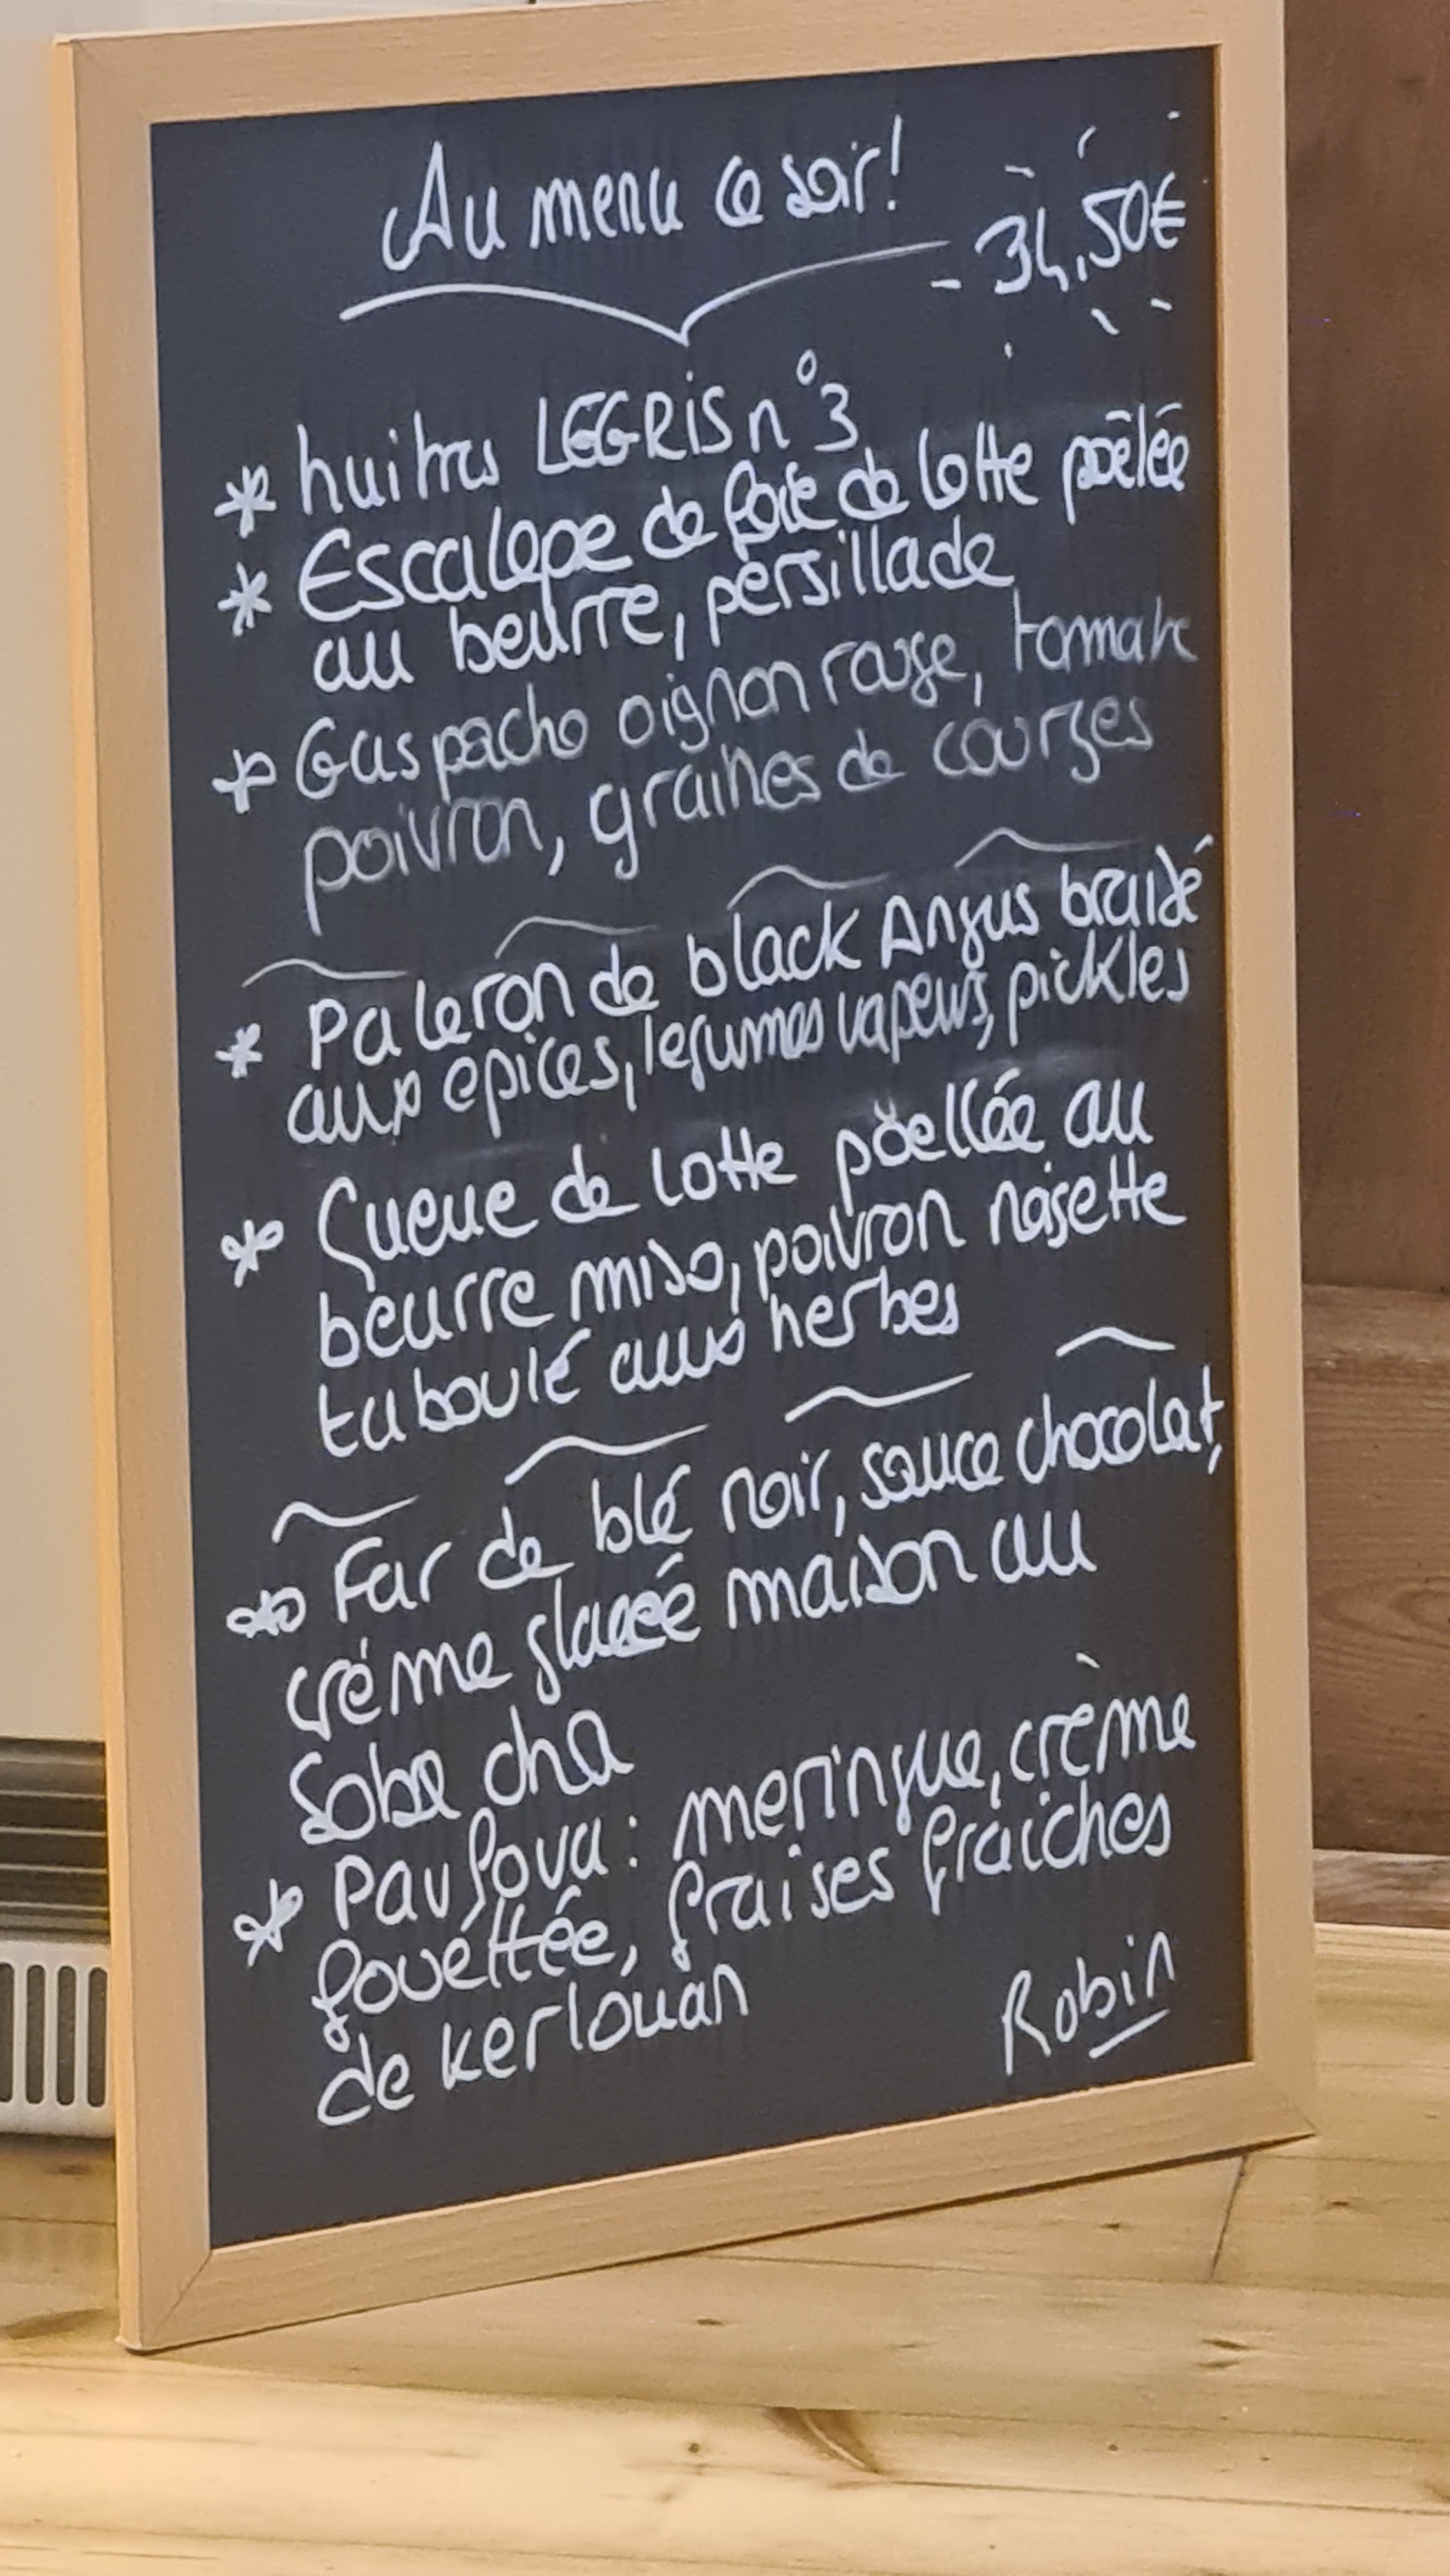 Au menu ce soir!
34,50€
* huitres LEGRIS n°3
* Escalope de foie de lotte poêlée
au beurre, persillade
* Gaspacho oignon rouge, tomate
poivron, graines de courges
* Paleron de black Angus braisé
aux epices, legumes vapeurs, pickles
* Queue de lotte pöellée au
beurre miso, poivron noisette
taboulé aux herbes
* Far de blé noir, sauce chocolat,
créme glacée maison au
Soba cha
* Pavlova : meringue, crème
fouéttée, fraises fraiches
de kerlouan
Robin